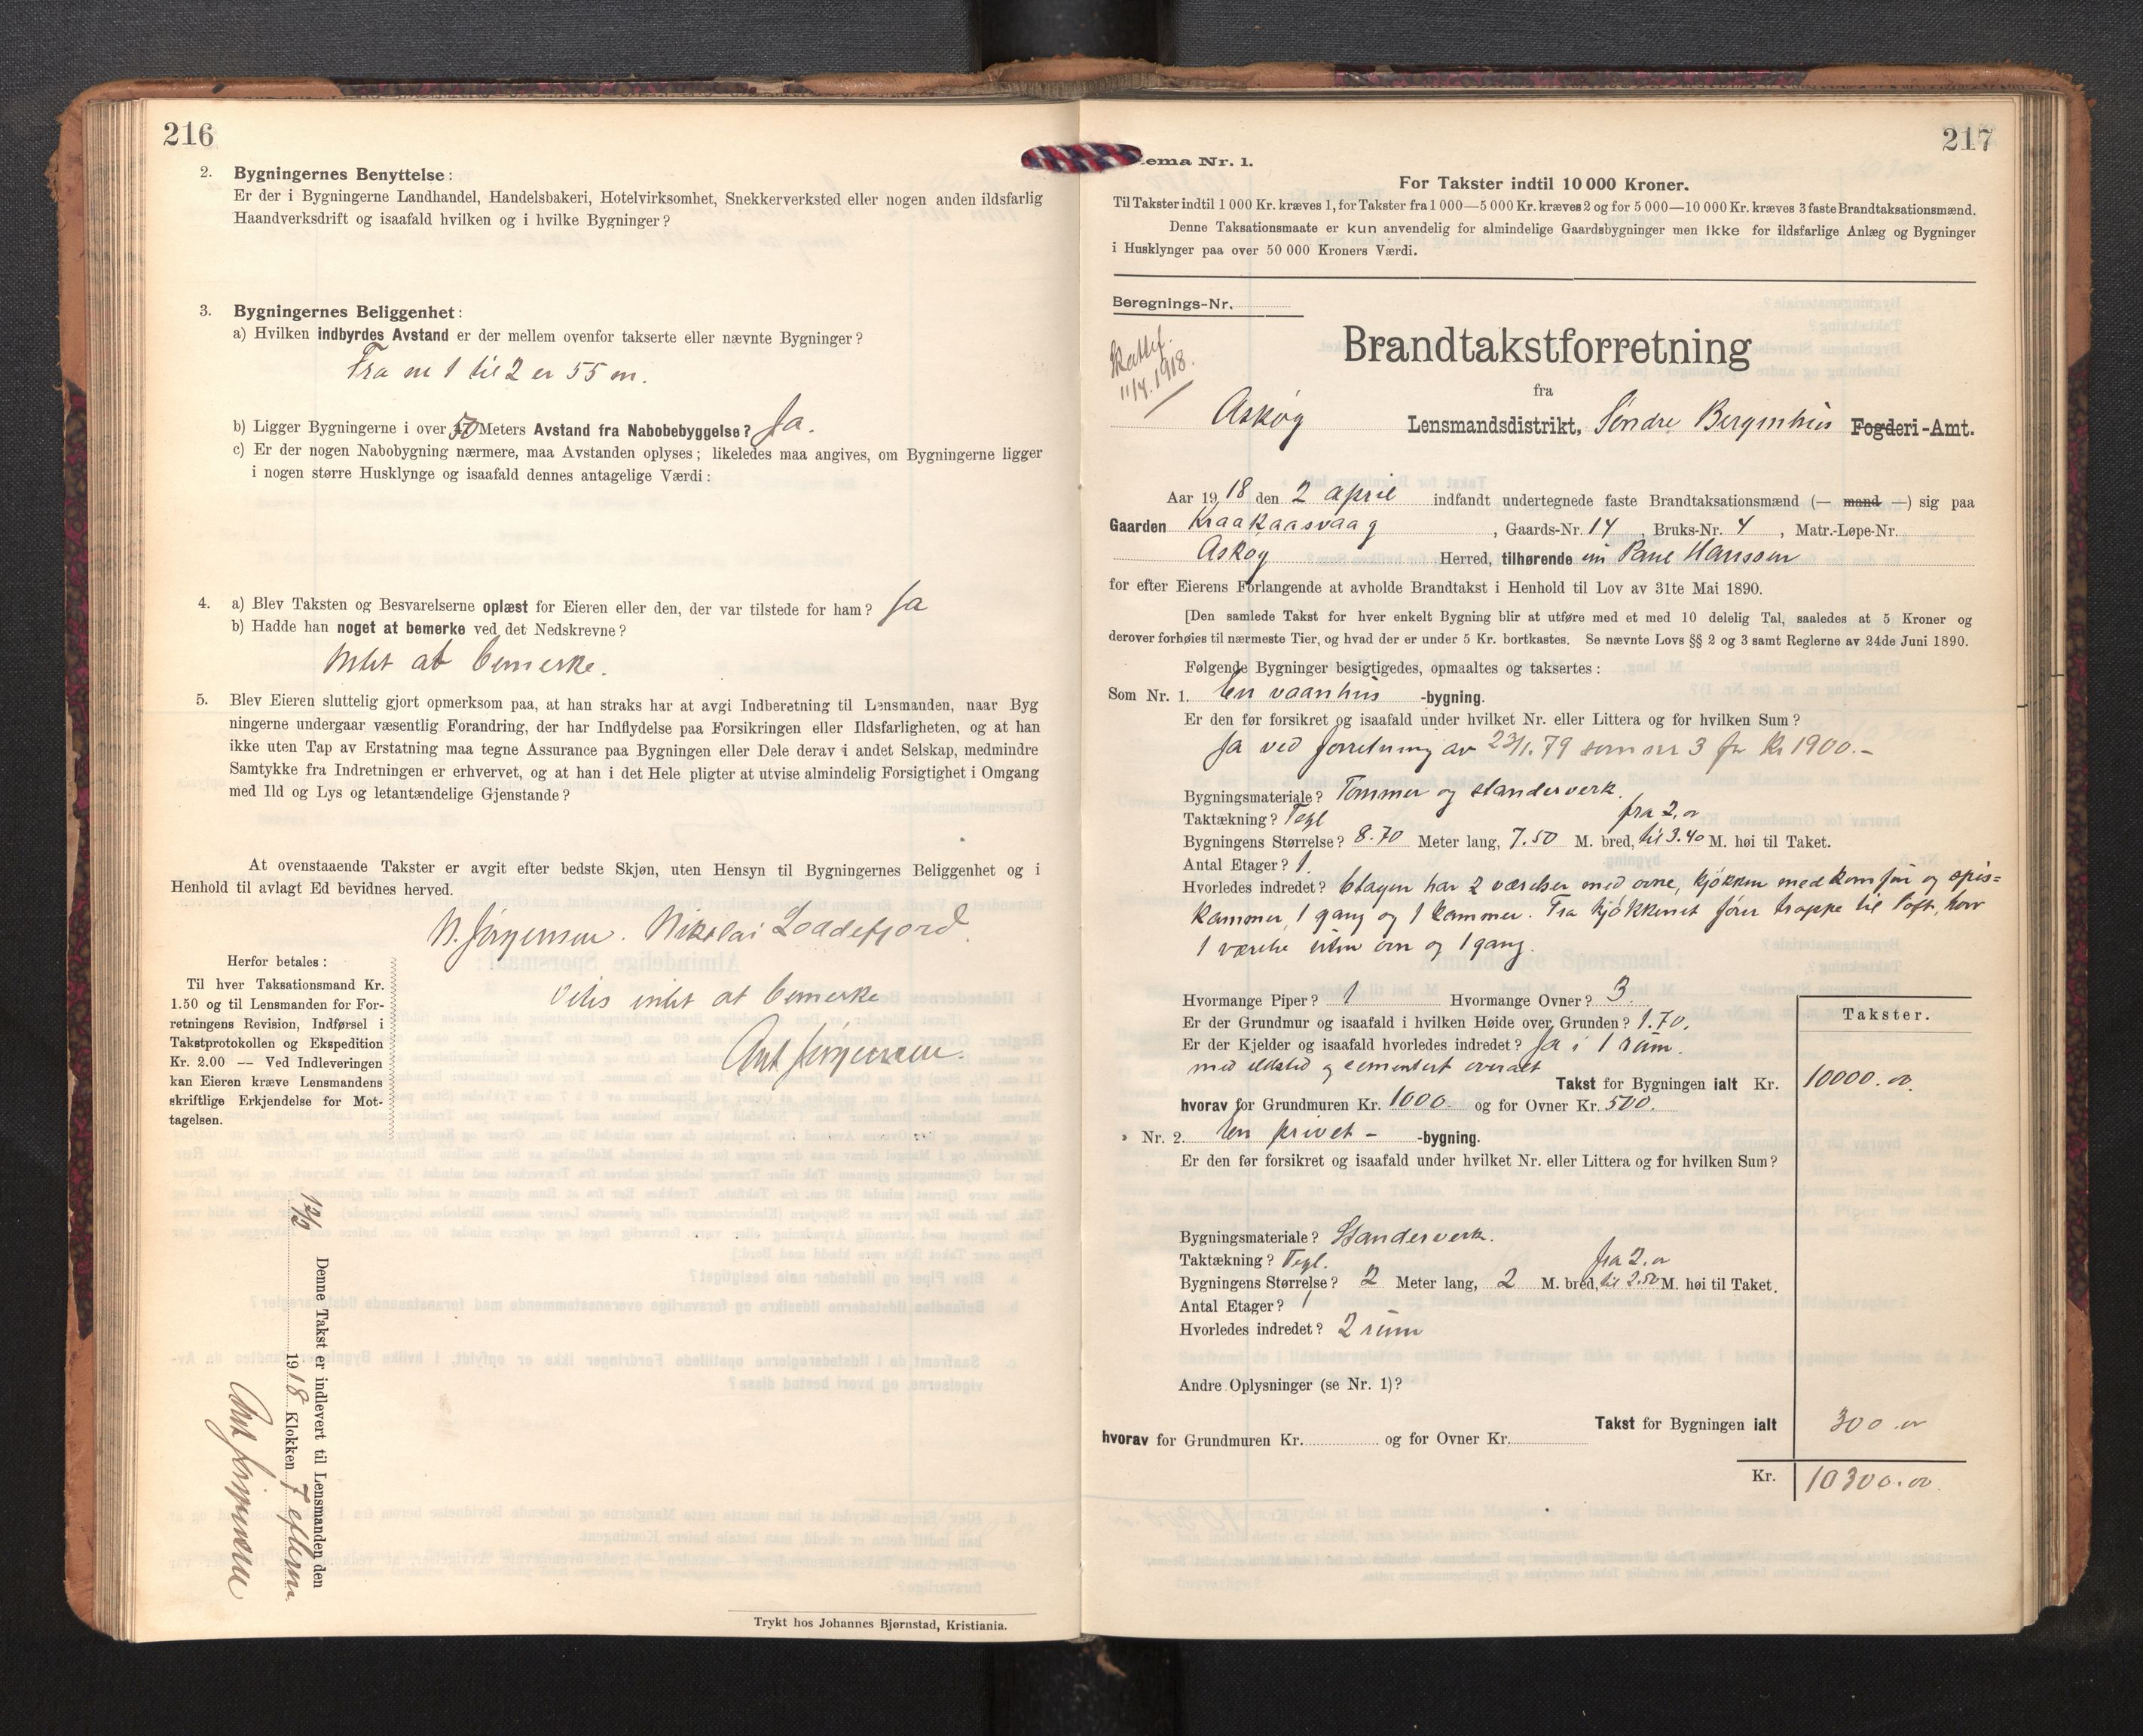 216
2. Bygningernes Benyttelse:
Er der i Bygningerne Landhandel, Handelsbakeri, Hotelvirksomhet, Snekkerverksted eller nogen anden ildsfarlig
Haandverksdrift og isaafald hvilken og i hvilke Bygninger?
3. Bygningernes Beliggenhet:
a) Hvilken indbyrdes Avstand er der mellem ovenfor takserte eller nævnte Bygninger?
Fra nr 1 til 2 er 55 m.
b) Ligger Bygningerne i over 50 Meters Avstand fra Nabobebyggelse? Ja.
c) Er der nogen Nabobygning nærmere, maa Avstanden oplyses; likeledes maa angives, om Bygningerne ligger
i nogen større Husklynge og isaafald dennes antagelige Værdi:
4. a) Blev Taksten og Besvarelserne oplæst for Eieren eller den, der var tilstede for ham? Ja
b) Hadde han noget at bemerke ved det Nedskrevne?
Intet at bemerke.
5. Blev Eieren sluttelig gjort opmerksom paa, at han straks har at avgi Indberetning til Lensmanden, naar Byg
ningerne undergaar væsentlig Forandring, der har Indflydelse paa Forsikringen eller Ildsfarligheten, og at han
ikke uten Tap av Erstatning maa tegne Assurance paa Bygningen eller Dele derav i andet Selskap, medmindre
Samtykke fra Indretningen er erhvervet, og at han i det Hele pligter at utvise almindelig Forsigtighet i Omgang
med Ild og Lys og letantændelige Gjenstande?
At ovenstaaende Takster er avgit efter bedste Skjøn, uten Hensyn til Bygningernes Beliggenhet og i
Henhold til avlagt Ed bevidnes herved.
N. Jørgensen. Nikolai Loddefjord.
Vites intet at bemerke
Ant Jørgensen.
Herfor betales:
Til hver Taksationsmand Kr.
1.50 og til Lensmanden for For-
retningens Revision, Indførsel i
Takstprotokollen og Ekspedition
Kr. 2.00 — Ved Indleveringen
kan Eieren kræve Lensmandens
skriftlige Erkjendelse for Mot-
tagelsen.
Denne Takst er indlevert til Lensmanden den
1918 Klokken 7 efterm.
Ant Jørgensen
Trykt hos Johannes Bjørnstad, Kristiania.
217
ema Nr. 1.
For Takster indtil 10 000 Kroner.
Til Takster indtil 1 000 Kr. kræves 1, for Takster fra 1 000—5 000 Kr. kræves 2 og for 5 000—10 000 Kr. kræves 3 faste Brandtaksationsmænd.
Denne Taksationsmaate er kun anvendelig for almindelige Gaardsbygninger men ikke for ildsfarlige Anlæg og Bygninger
i Husklynger paa over 50 000 Kroners Værdi.
Beregnings-Nr.
Brandtakstforretning
11/4.1918.
fra
Askøy Lensmandsdistrikt, Søndre Bergenhus Fogderi-Amt.
Aar 1918 den 2 april indfandt undertegnede faste Brandtaksationsmænd (— mand —) sig paa
Gaarden Kraakaasvaag, Gaards-Nr. 14, Bruks-Nr. 4, Matr.-Løpe-Nr.
Askøy Herred, tilhørende Paul Hanssen
for efter Eierens Forlangende at avholde Brandtakst i Henhold til Lov av 31te Mai 1890.
[Den samlede Takst for hver enkelt Bygning blir at utføre med et med 10 delelig Tal, saaledes at 5 Kroner og
derover forhøies til nærmeste Tier, og hvad der er under 5 Kr. bortkastes. Se nævnte Lovs §§ 2 og 3 samt Reglerne av 24de Juni 1890.
Følgende Bygninger besigtigedes, opmaaltes og taksertes:
Som Nr. 1. En vaanhus -bygning.
Er den før forsikret og isaafald under hvilket Nr. eller Littera og for hvilken Sum?
Ja ved forretning av 23/1.79 som nr 3 for Kr 1900.-
Bygningsmateriale? Tømmer og standerverk.
Taktækning? Tegl
Bygningens Størrelse? 8.70 Meter lang, 7.50 M. bred, fra 2,00 til 3.40 M. høi til Taket.
Antal Etager? 1.
Hvorledes indredet? Etagen har 2 værelser med ovne, kjøkken med komfur og spis=
kammer, 1 gang og 1 kammer. Fra kjøkkenet fører trappe til loft, hvor
1 værelse uten ovn og 1 gang.
Hvormange Piper? 1 Hvormange Ovner? 3.
Er der Grundmur og isaafald i hvilken Høide over Grunden? 1.70.
Er der Kjelder og isaafald hvorledes indredet? Ja i 1 rum.
med ildsted og cementert overalt
Takster.
Takst for Bygningen ialt Kr. 10000.00.
hvorav for Grundmuren Kr. 1000. og for Ovner Kr. 500.
» Nr. 2. En privet - -bygning.
Er den før forsikret og isaafald under hvilket Nr. eller Littera og for hvilken Sum?
Bygningsmateriale? Standerverk.
Taktækning? Tegl.
Bygningens Størrelse? 2 Meter lang, 2 M. bred, fra 2.00 til 2.50 M. høi til Taket.
Antal Etager? 1
Hvorledes indredet? 2 rum
Andre Oplysninger (se Nr. 1)?
Takst for Bygningen ialt 300.00
hvorav for Grundmuren Kr. og for Ovner Kr.
Kr. 10300.00.